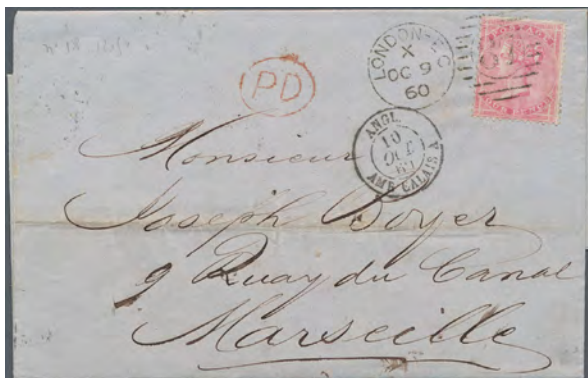 POSTAGE
LONDON-EC
X
OC 9
60
PD
ANGL.
10
OCT
60
AMB. CALAIS A
Monsieur
Joseph Boyer
9 Quay du Canal
Marseille